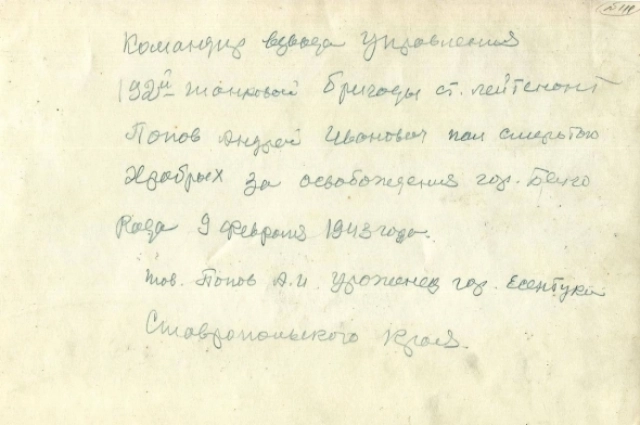 Командир взвода управления
192й танковой бригады ст. лейтенант
Попов Андрей Иванович пал смертью
храбрых за освобождения гор. Белго
рада 9 февраля 1943 года.
тов. Попов А.И. уроженец гор. Есентуки
Ставропольского края.